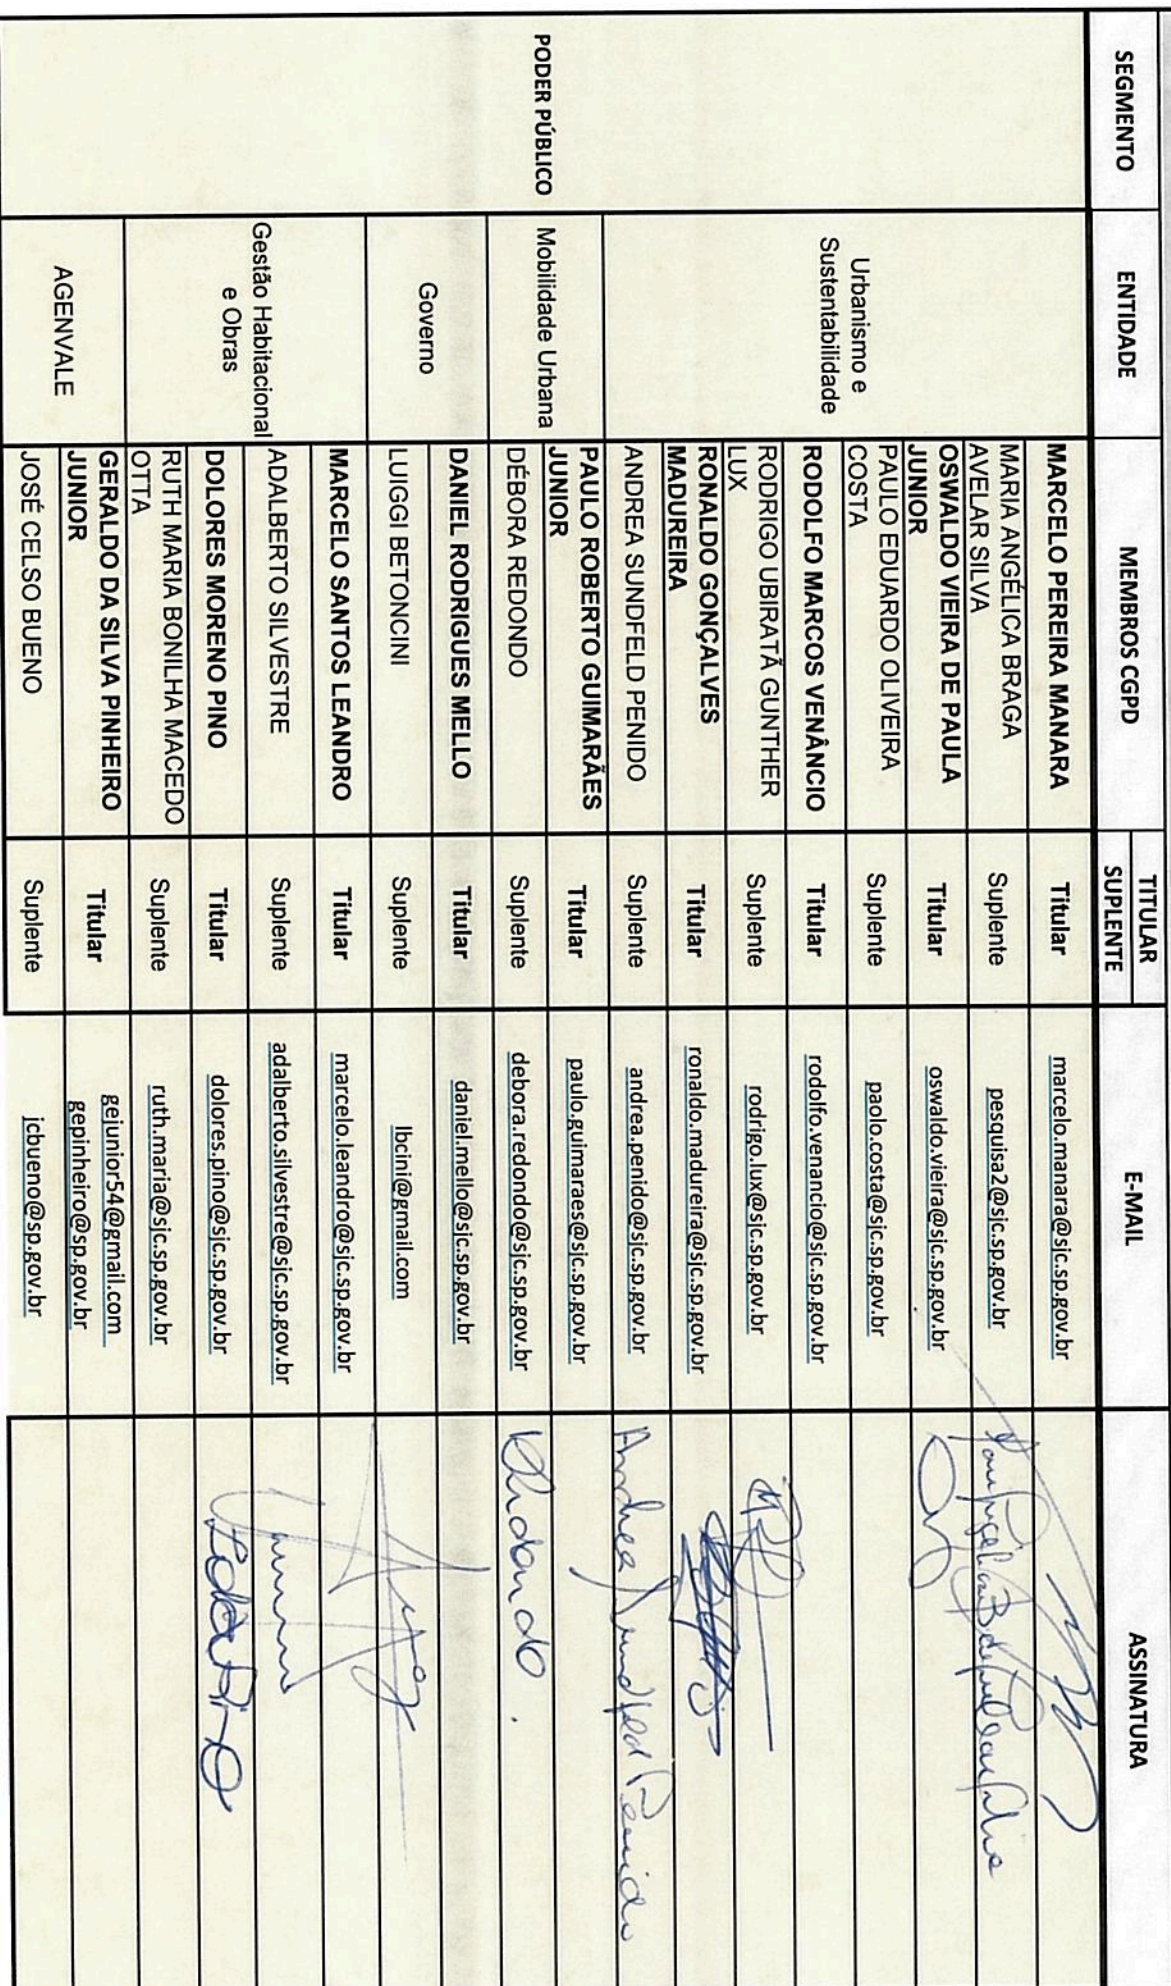 SEGMENTO
ENTIDADE
MEMBROS CGPD
TITULAR
SUPLENTE
E-MAIL
ASSINATURA
PODER PÚBLICO
Urbanismo e
Sustentabilidade
MARCELO PEREIRA MANARA
Titular
marcelo.manara@sjc.sp.gov.br
MARIA ANGÉLICA BRAGA
AVELAR SILVA
Suplente
pesquisa2@sjc.sp.gov.br
OSWALDO VIEIRA DE PAULA
JUNIOR
Titular
oswaldo.vieira@sjc.sp.gov.br
PAULO EDUARDO OLIVEIRA
COSTA
Suplente
paolo.costa@sjc.sp.gov.br
RODOLFO MARCOS VENÂNCIO
Titular
rodolfo.venancio@sjc.sp.gov.br
RODRIGO UBIRATÃ GUNTHER
LUX
Suplente
rodrigo.lux@sjc.sp.gov.br
RONALDO GONÇALVES
MADUREIRA
Titular
ronaldo.madureira@sjc.sp.gov.br
ANDREA SUNDFELD PENIDO
Suplente
andrea.penido@sjc.sp.gov.br
Andrea Sundfeld Penido
Mobilidade Urbana
PAULO ROBERTO GUIMARÃES
JUNIOR
Titular
paulo.guimaraes@sjc.sp.gov.br
DÉBORA REDONDO
Suplente
debora.redondo@sjc.sp.gov.br
Governo
DANIEL RODRIGUES MELLO
Titular
daniel.mello@sjc.sp.gov.br
LUIGGI BETONCINI
Suplente
lbcini@gmail.com
Gestão Habitacional
e Obras
MARCELO SANTOS LEANDRO
Titular
marcelo.leandro@sjc.sp.gov.br
ADALBERTO SILVESTRE
Suplente
adalberto.silvestre@sjc.sp.gov.br
DOLORES MORENO PINO
Titular
dolores.pino@sjc.sp.gov.br
RUTH MARIA BONILHA MACEDO
OTTA
Suplente
ruth.maria@sjc.sp.gov.br
AGENVALE
GERALDO DA SILVA PINHEIRO
JUNIOR
Titular
gejunior54@gmail.com
gepinheiro@sp.gov.br
JOSÉ CELSO BUENO
Suplente
jcbueno@sp.gov.br